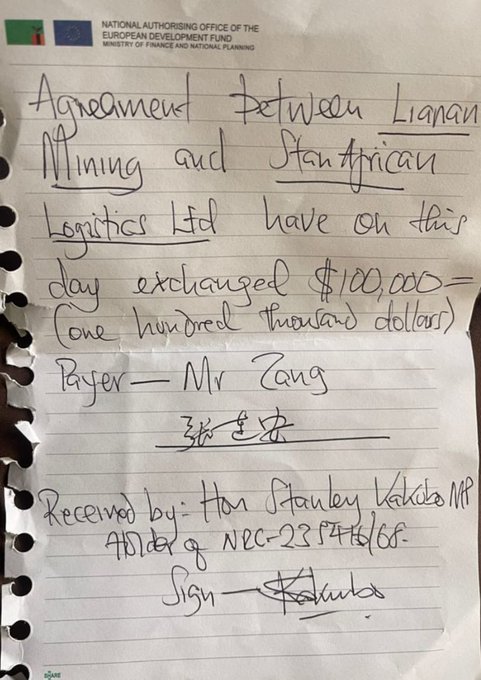 NATIONAL AUTHORISING OFFICE OF THE
EUROPEAN DEVELOPMENT FUND
MINISTRY OF FINANCE AND NATIONAL PLANNING
Agreament between Lianan
Mining and Stan African
Logistics Ltd have on this
day exchanged $100,000=
(one hundred thousand dollars)
Payer — Mr Zang
张
Received by:- Hon Stanley Kakubo MP
Holder of NRC-
Sign — Kakubo
SHARE